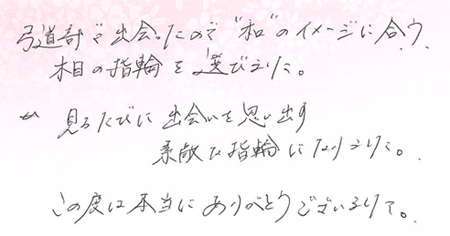 弓道部で出会ったので"和"のイメージに合う、
木目の指輪を選びました。
見るたびに出会いを思い出す
素敵な指輪になりました。
この度は本当にありがとうございました。